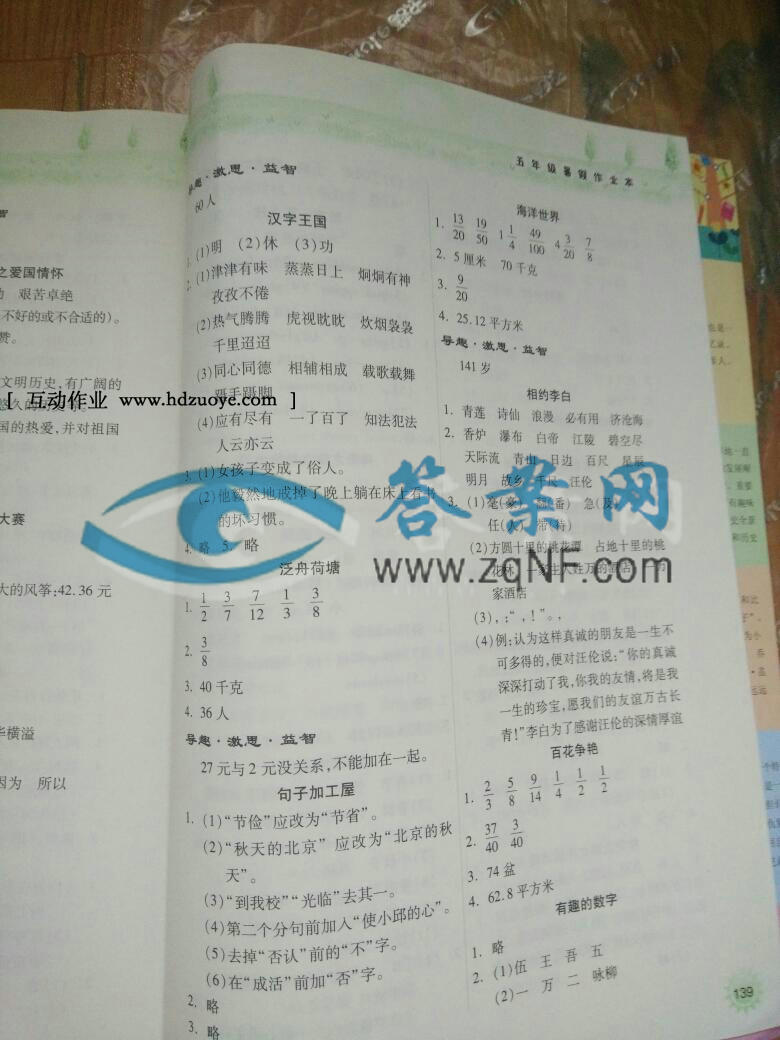 五年级暑假作业本
智
之爱国情怀
艰苦卓绝
不好的或不合适的）。
赞。
文明历史，有广阔的
国的热爱，并对祖国
大赛
大的风筝；42.36 元
华横溢
因为 所以
导趣·激思·益智
60 人
汉字王国
1. (1)明 (2)休 (3)功
2. (1)津津有味 蒸蒸日上 炯炯有神
孜孜不倦
(2)热气腾腾 虎视眈眈 炊烟袅袅
千里迢迢
(3)同心同德 相辅相成 载歌载舞
蹑手蹑脚
(4)应有尽有 一了百了 知法犯法
人云亦云
3. (1)女孩子变成了俗人。
(2)他毅然地戒掉了晚上躺在床上看书
的坏习惯。
4. 略 5. 略
泛舟荷塘
1. 1/2 3/7 7/12 1/3 3/8
2. 3/8
3. 40 千克
4. 36 人
导趣·激思·益智
27 元与 2 元没关系，不能加在一起。
句子加工屋
1. (1)“节俭”应改为“节省”。
(2)“秋天的北京” 应改为“北京的秋
天”。
(3)“到我校”“光临”去其一。
(4)第二个分句前加入“使小邱的心”。
(5)去掉“否认”前的“不”字。
(6)在“成活”前加“否”字。
2. 略
3. 略
海洋世界
1. 13/20 19/50 1 1/4 49/100 4 3/20 7/8
2. 5 厘米 70 千克
3. 9/20
4. 25.12 平方米
导趣·激思·益智
141 岁
相约李白
1. 青莲 诗仙 浪漫 必有用 济沧海
2. 香炉 瀑布 白帝 江陵 碧空尽
天际流 青山 日边 百尺 星辰
明月 故乡 千尺 汪伦
3. (1)毫(豪) 翻(番) 急(及)
任(人) 带(待)
(2)方圆十里的桃花潭 占地十里的桃
家酒店
(3)，：“，！”。，
(4)例：认为这样真诚的朋友是一生不
可多得的，便对汪伦说：“你的真诚
深深打动了我，你我的友情，将是我
一生的珍宝，愿我们的友谊万古长
青！”李白为了感谢汪伦的深情厚谊
百花争艳
1. 2/3 5/8 9/14 1/4 1/2 1/2
2. 37/40 3/40
3. 74 盆
4. 62.8 平方米
有趣的数字
1. 略
2. (1)伍 王 吾 五
(2)一 万 二 咏柳
139
[ 互动作业 www.hdzuoye.com ]
答案网
www.zqNF.com